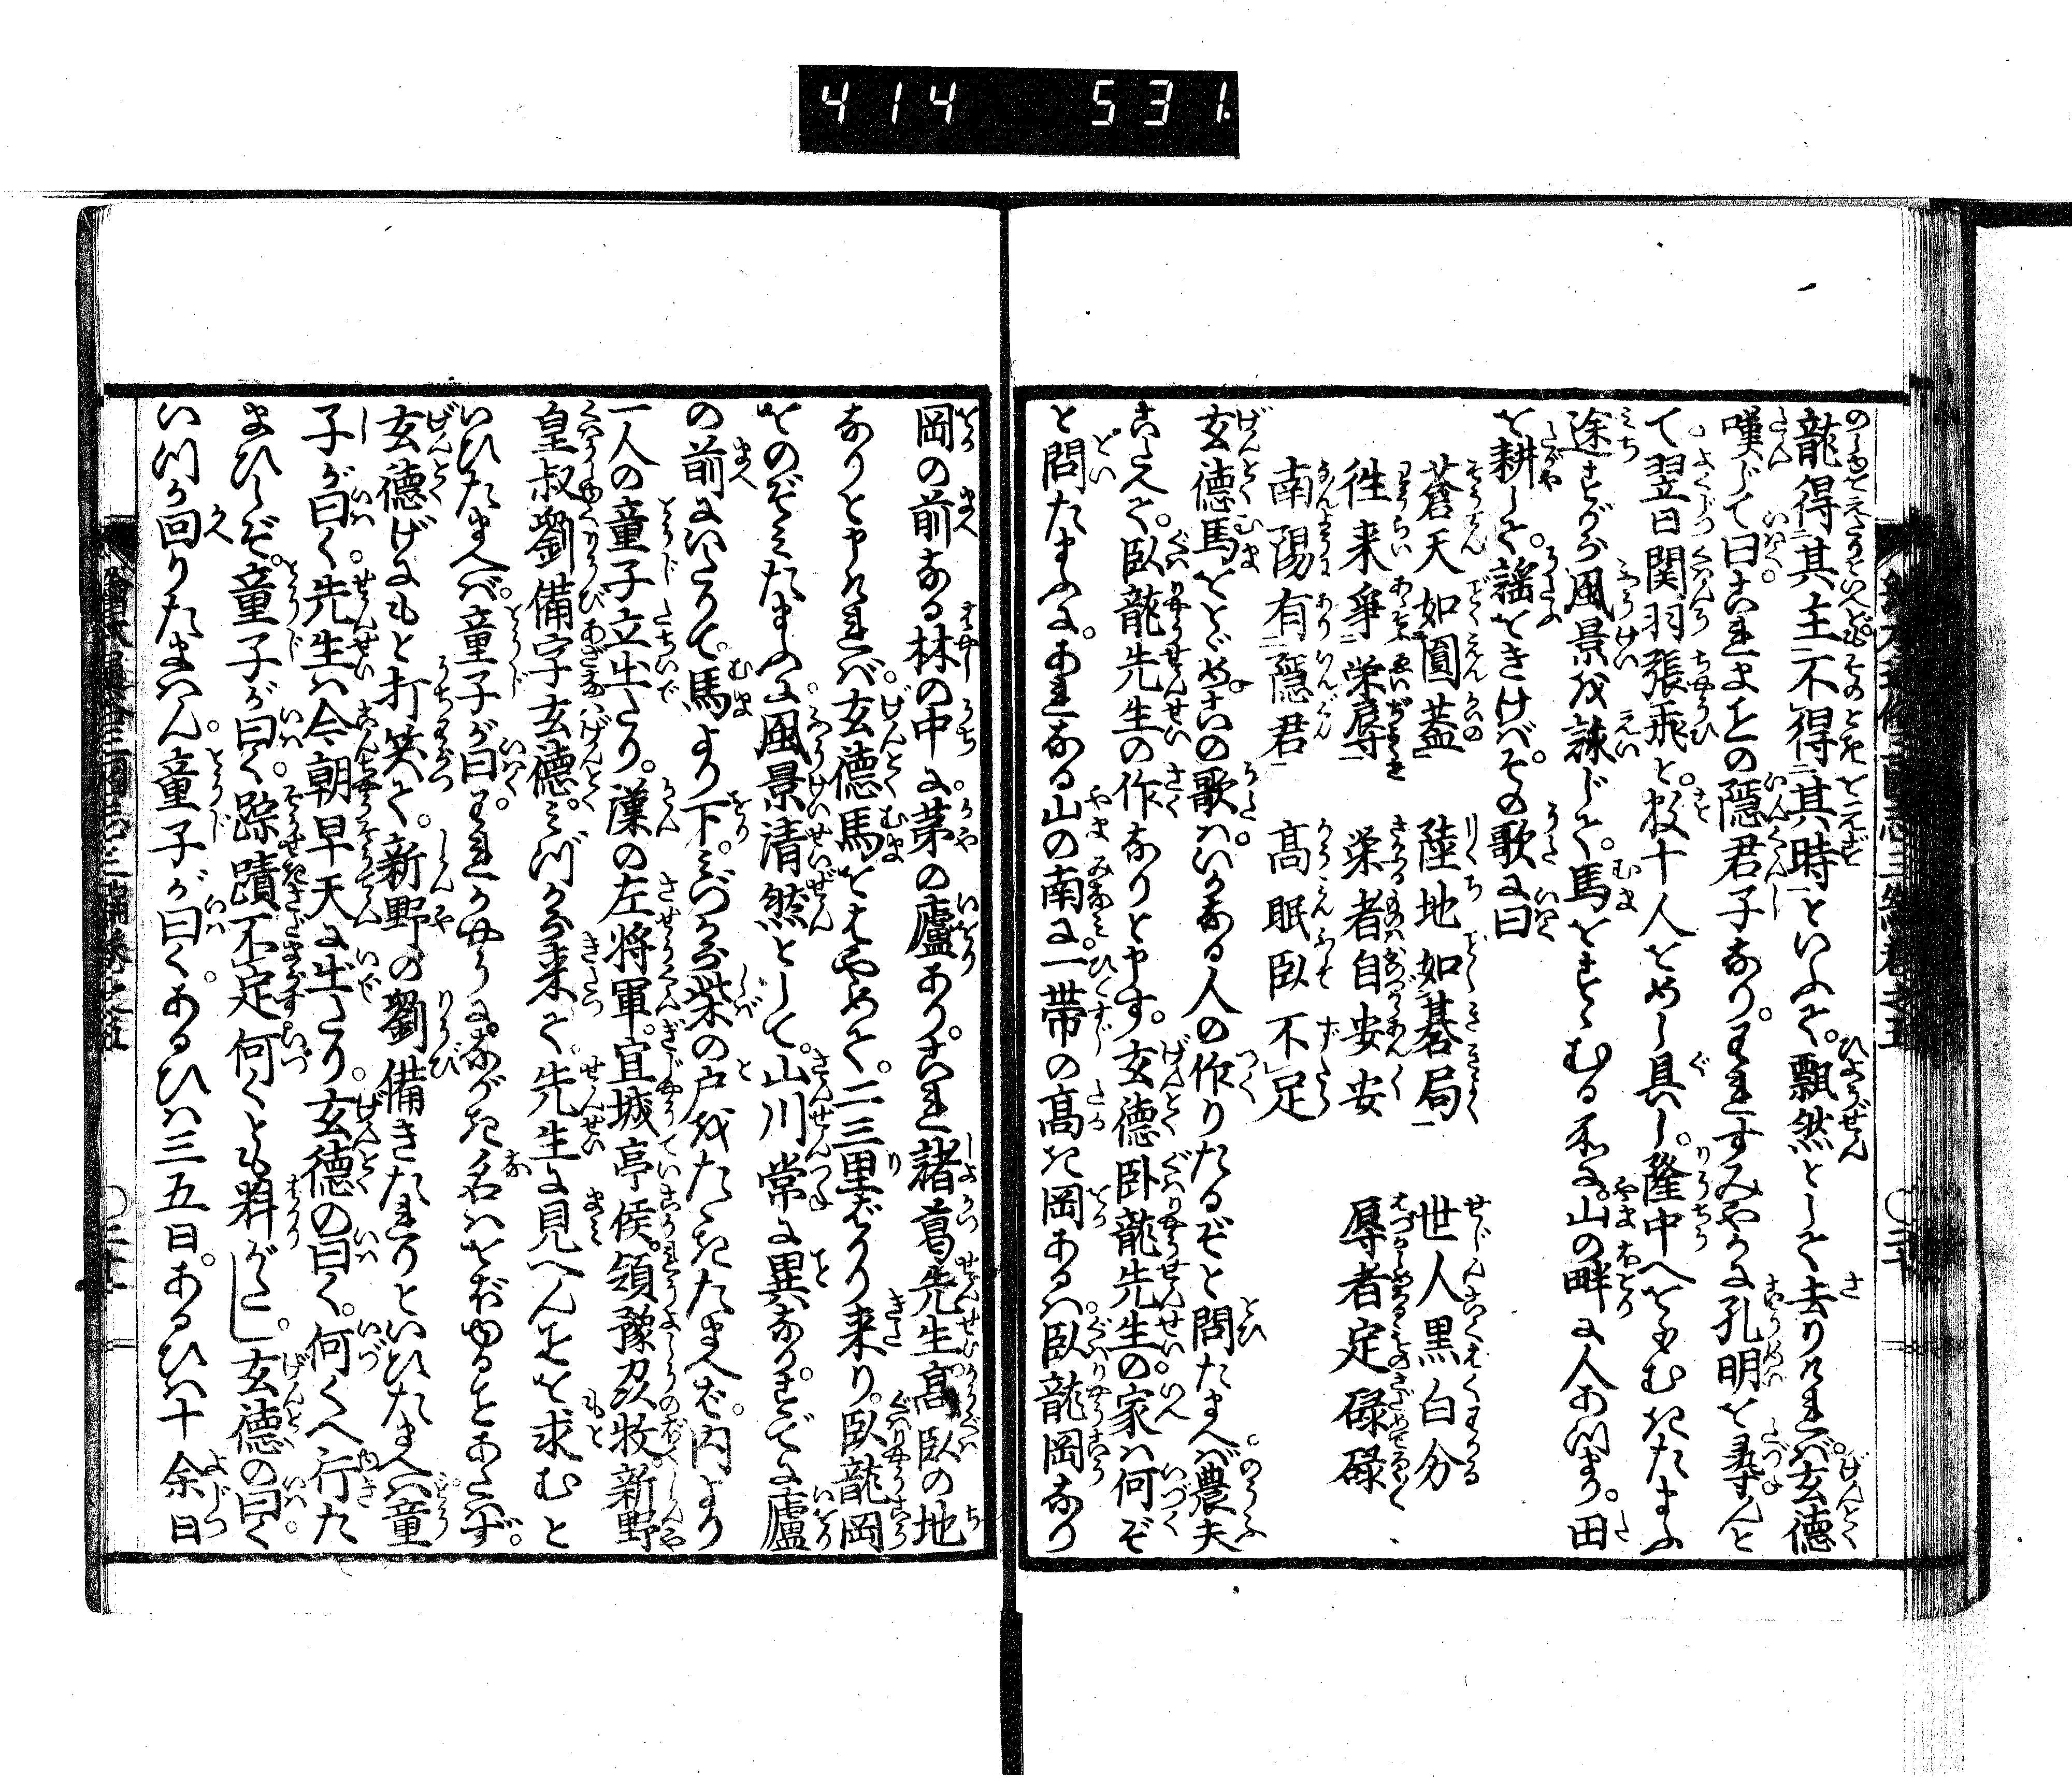 414 531
龍得其主不得其時といふて。飄然として去りければ。玄德
嘆じて曰。これまことの隱君子なり。われすみやかに孔明を尋んと
て翌日関羽張飛と。数十人をめし具し。隆中へをもむきたまふ
途すがら風景を詠じて。馬をすゝむる所に。山の畔に人あつまり。田
を耕して。謡をきけば。その歌に曰
蒼天如圓蓋　陸地如碁局　世人黒白分
徃来爭栄辱　栄者自安安　辱者定碌碌
南陽有隱君　髙眠臥不足
玄德馬をとゞめ。この歌はいかなる人の作りたるぞと問たまへば。農夫
こたへて。臥龍先生の作なりと申す。玄德卧龍先生の家は何ぞ
と問たまふに。あれなる山の南に。一帯の髙き岡あるは。臥龍岡なり
岡の前なる林の中に。茅の廬あり。これ諸葛先生髙臥の地
なりと申ければ。玄德馬をはやめて。二三里ばかり来り。臥龍岡
をのぞみたまふに。風景清然として。山川常に異なり。すでに廬
の前にいたりて。馬より下。みづから柴の戸をたゝきたまへば。内より
一人の童子立出たり。漢の左将軍。宜城亭侯。領豫州牧。新野
皇叔劉備字玄德。みづから来て。先生に見へんことを求むと
いひたまへば。童子が曰。われかやうに。ながき名はをぼゆることあたはず。
玄德げにもと打笑て。新野の劉備きたれりといひたまへ。童
子が曰く。先生は今朝早天に出たり。玄德の曰く。何くへ行た
まひしぞ。童子が曰く。踪蹟不定何くとも料がたし。玄德の曰く
いつか回りたまはん。童子が曰く。あるひは三五日。あるひは十余日